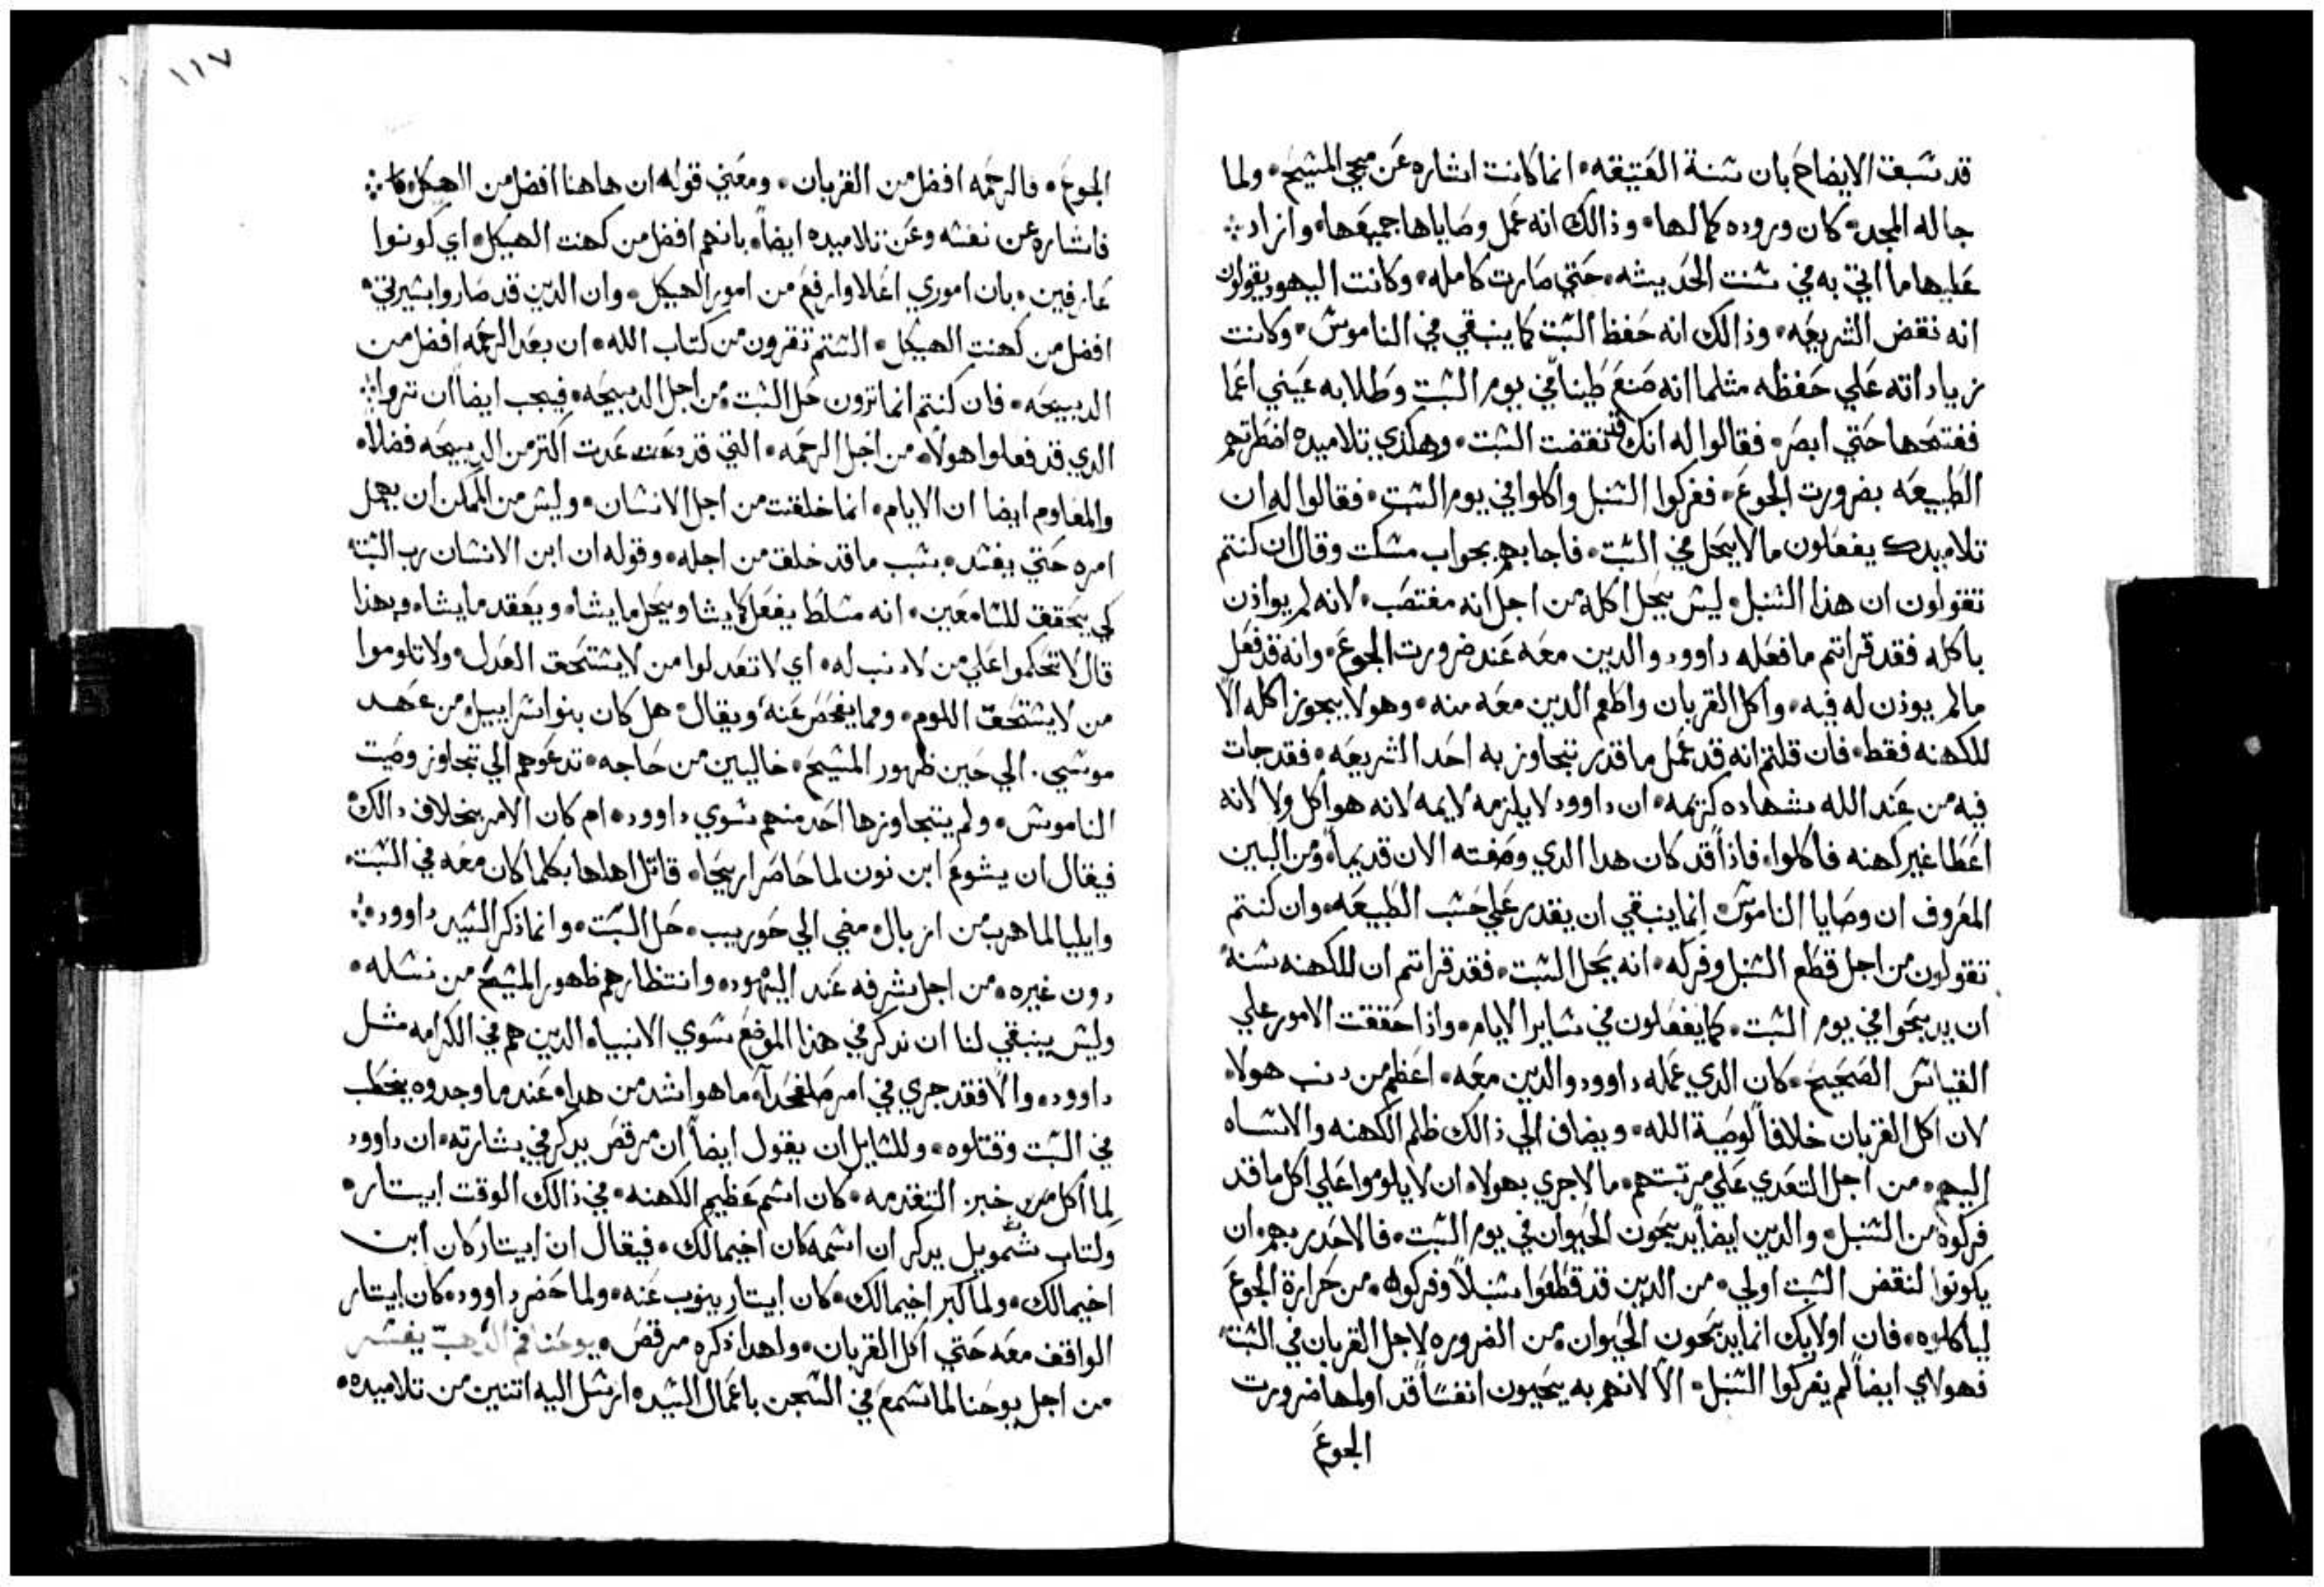 قد سَبقت الايضاح بان سنة العَتيقه • انما كانت اشاره عَن مجي المسَيح • ولما
جا له المجد • كان وروده كمالها • وذالك انه عَمل وصَاياها جميعَها • وازاد
عَليها ما اتي به في سنت الحَديثه • حَتي صَارت كامله • وكانت اليهود يقولون
انه نقض الشريعَه • وذالك انه حَفظ السَبت كما ينبقي في الناموس • وكانت
زياداته عَلي حَفظه مثلما انه صَنعَ طَيناً في يوم السَبت وطَلا به عَيني اعَما
ففتحَها حَتي ابصَر • فقالوا له انك قد نقضت السَبت • وهكذي تلاميده اضطَرتهم
الطَبيعَه بضرورت الجوعَ • ففركوا السَنبل واكلوا في يوم السَبت • فقالوا له ان
تلاميدك يفعَلون ما لا يحَل في السَبت • فاجابهم بجواب مسكت وقال ان كنتم
تقولون ان هذا السَنبل • ليس يحَل اكله من اجل انه مغتصَب • لانه لم يواذن
باكله فقد قراتم ما فعَله داوود والدين معَه عَند ضرورت الجوعَ • وانه قد فعَل
مالم يوذن له فيه • واكل القربان واطَعم الدين معَه منه • وهو لا يجوز اكله الا
للكهنه فقط • فان قلتم انه قد عَمل ما قدر تتجاوز به احَد الشريعَه • فقد جات
فيه من عَند الله شهاده كريمه • ان داوود لا يلزمه لايمه لانه هو اكل ولا لانه
اعَطا غير كهنه فاكلوا • فاذاً قد كان هدا الدي وصَفته الان قديماً • ومن البين
المعَروف ان وصَايا الناموس • انما ينبقي ان يقدر عَلي حَسَب الطَبيعَه • وان كنتم
تقولون من اجل قطَع السَنبل وفركه • انه يحَل السَبت • فقد قراتم ان للكهنه سَنة
ان يدبحَوا في يوم السَبت • كما يفعَلون في سَاير الايام • واذا حَققت الامور علي
القياس الصَحَيحَ • كان الدي عَمله داوود والدين معَه • اعَظم من دنب هولاء
لان اكل القربان خلافاً لوصَية الله • ويضاف الي ذالك ظلم الكهنه والاسَاه
اليهم • من اجل التعَدي عَلي مرتبتهم • مالا جري بهولاء ان لا يلوموا عَلي اكل ما قد
فركوه من السَنبل • والدين ايضاً يدبحَون الحَيوان في يوم السَبت • فالاحَدر بهم • ان
يكونوا لنقض السَبت اولي • من الدين قد قطَعَوا سَنبلاً وفركوه • من حَرارة الجوعَ
لياكلوه • فان اولايك انما يدبحَون الحَيوان من الضروره لاجل القربان في السَبت
فهولاي ايضاً لم يفركوا السَنبل • الا لانهم به يحَيون انفسَاً قد اولمها ضرورت
الجوعَ
١١٧
الجوعَ • فالرحَمه افضل من القربان • ومعَني قوله ان هاهنا افضل من الهيكل
فاشاره عن نفسَه وعَن تلاميده ايضاً • بانهم افضل من كهنت الهيكل • اي كونوا
عَارفين • بان اموري اعَلا وارفعَ من امور الهيكل • وان الدين قد صَاروا بشيرتي
افضل من كهنت الهيكل • السَتم تقرون من كتاب الله • ان بعَد الرحَمه افضل من
الدبيحَه • فان كنتم انما ترون حَل السَبت من اجل الدبيحَه • فيجب ايضاً ان تروا
الدي قد فعَلوا هولاء • من اجل الرحمه • التي قد عَدت اكتر من الدبيحَه فضلاً
والمعَلوم ايضا ان الايام • انما خلقت من اجل الانسَان • وليس من الممكن ان يهمل
امره حَتي يفسَد • بسَبب ما قد خلق من اجله • وقوله ان ابن الانسَان رب السَبت
كي يحَقق للسَامعَين • انه مسَلط يفعَل كما يشا ويحَل ما يشاء • ويعَقد ما يشاء • وبهذا
قال لا تحَكموا عَلي من لا دنب له • اي لا تعَدلوا من لا يسَتحَق العَدل • ولا تلوموا
من لا يسَتحَق اللوم • ومما يفحَصَ عَنه • ويقال • هل كان بنوا اسَراييل • من عَهد
موسَي • الي حَين ظهور المسَيحَ • خاليين من حَاجه • تدعَوهم الي تجاوز وصَيت
الناموس • ولم يتجاوزها احَد منهم سَوي داوود • ام كان الامر بخلاف دالك
فيقال ان يشوعَ ابن نون لما حَاصَر اريحَا • قاتل اهلها بكلما كان معَه في السَبت
وايليا لما هرب من ازبال • مضي الي حَوريب • حَل السَبت • وانما ذكر السَيد داوود
دون غيره • من اجل شرفه عَند اليهود • وانتظارهم ظهور المسَيحَ من نسَله •
وليس ينبقي لنا ان ندكر في هذا الموضعَ سَوي الانبياء • الدين هم في الكرامه مثل
داوود • والا فقد جري في امر صَلفحَد اه ما هو اشد من هدا • عَند ما وجدوه يحَطَب
في السَبت وقتلوه • وللسَايل ان يقول ايضاً ان مرقصَ يدكر في بشارته • ان داوود
لما اكل من خبز التقدمه • كان اسَم عَظيم الكهنه • في ذالك الوقت ابيتار •
وكتاب شمويل يدكر ان اسَمه كان اخيمالك • فيقال ان ابيتار كان ابن
اخيمالك • ولما كبر اخيمالك • كان ابيتار ينوب عَنه • ولما حَضر داوود • كان ابيتار
الواقف معَه حَتي اكل القربان • ولهدا ذكره مرقصَ • يوحَنا فم الدهب يفسَر
من اجل يوحَنا لما سَمعَ في السَجن باعَمال السَيد • ارسَل اليه اتنين من تلاميده •